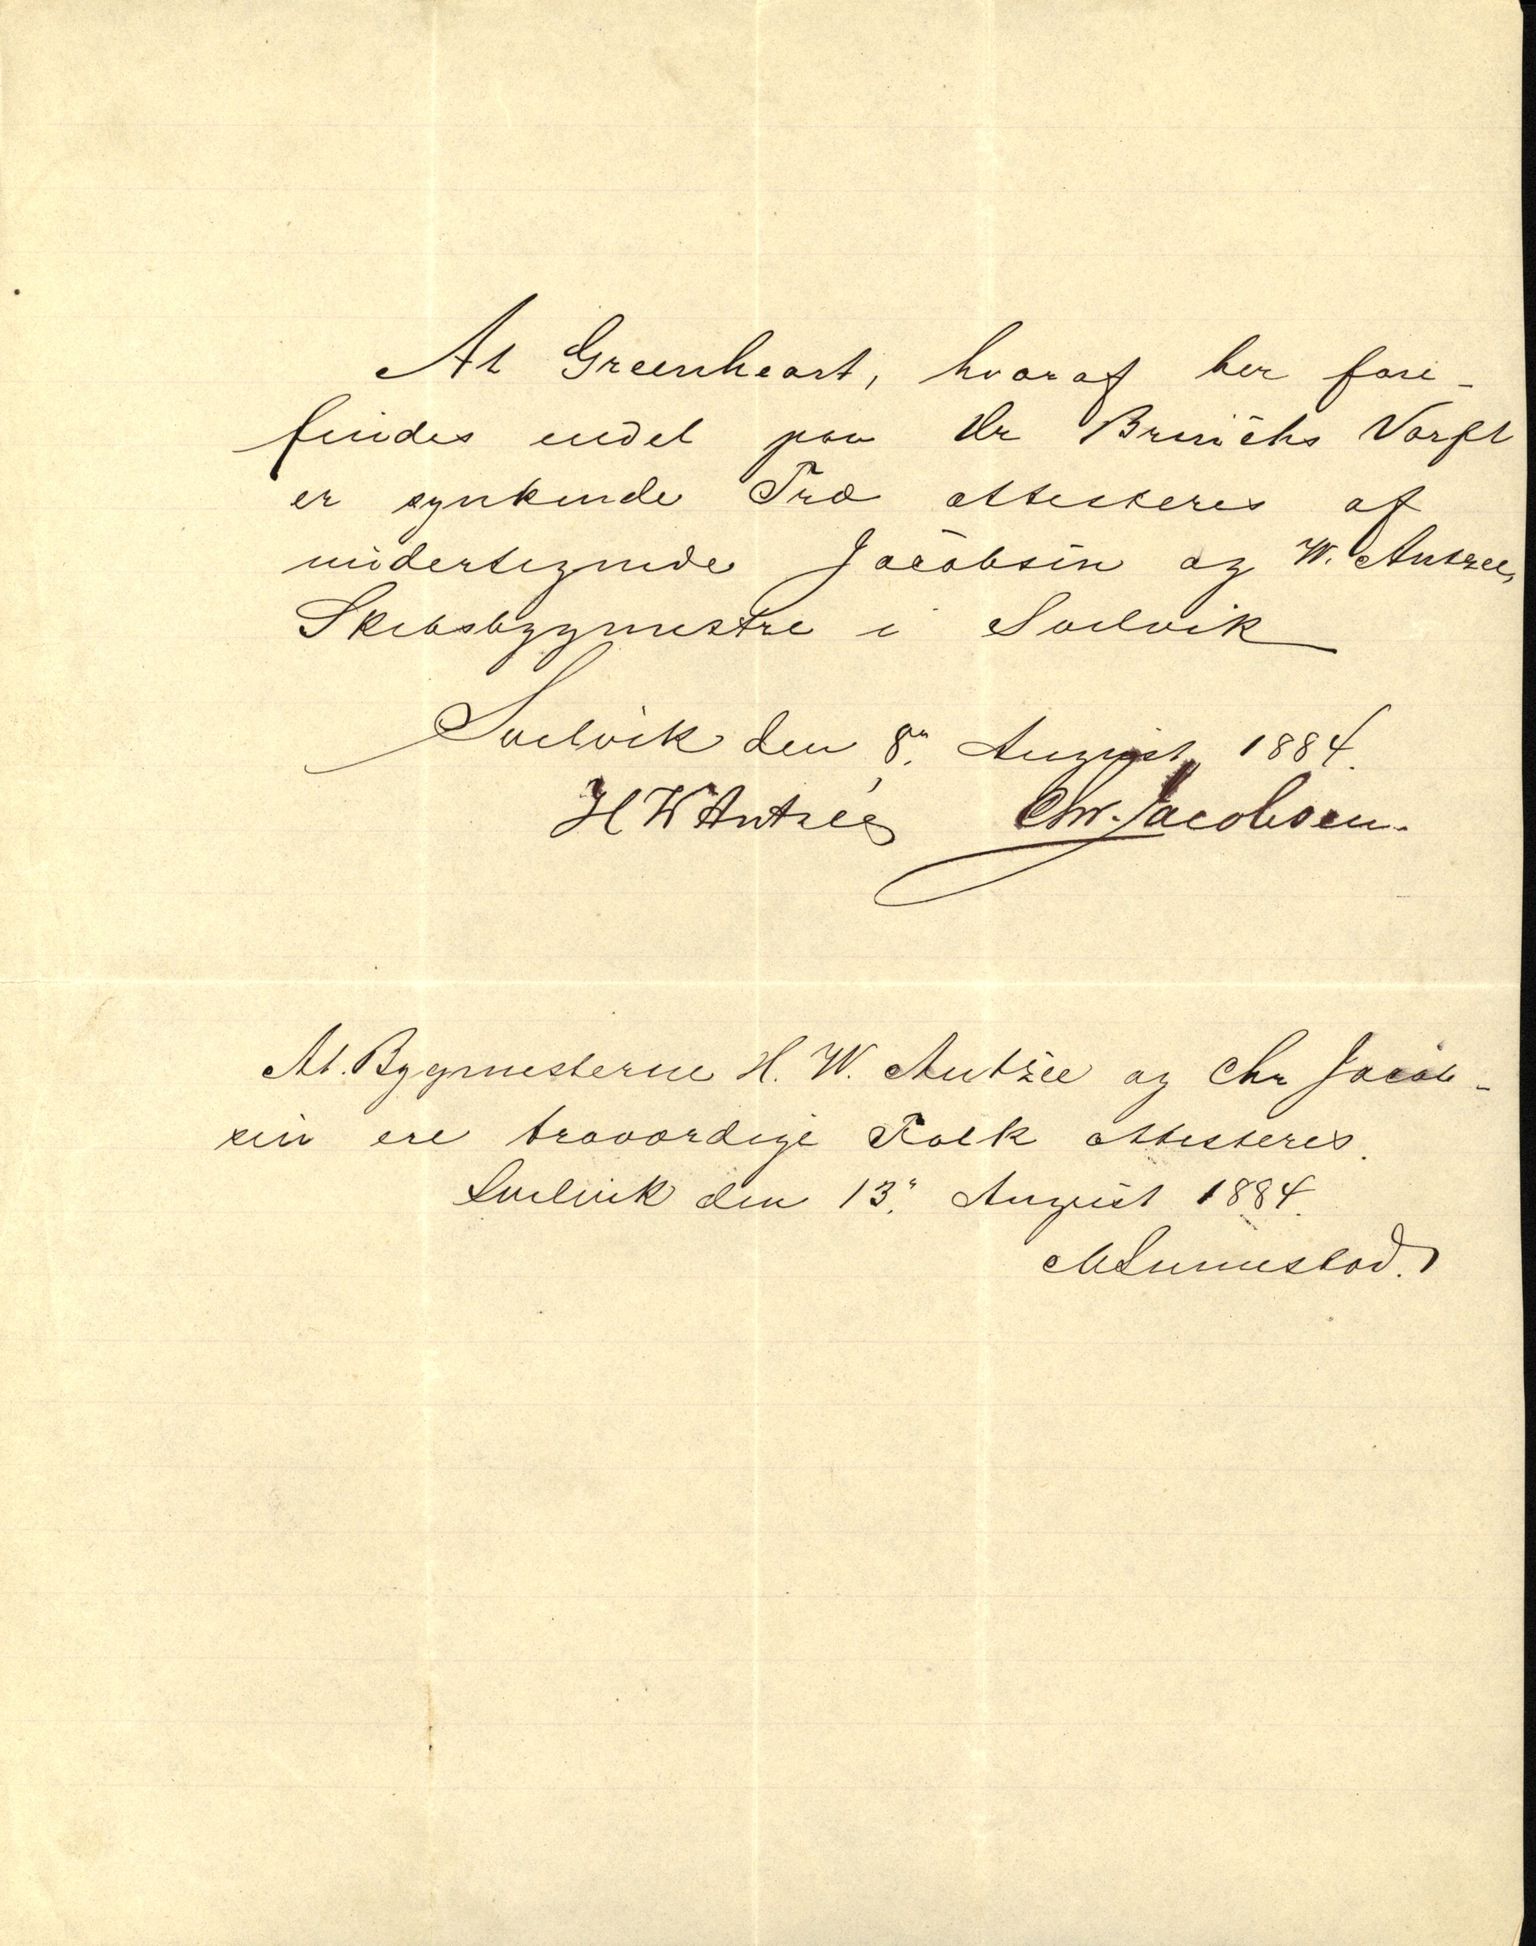 At Greenheart, hvoraf her fore-
findes endel paa Hr Brinchs Varft
er synkende Træ attesteres af
undertegnede Jacobsen og W. Antzée,
Skibsbygmestre i Svelvik
Svelvik den 8" August 1884.
H W Antzée Chr. Jacobsen.
At Bygmesterne H. W. Antzée og Chr Jacob-
sen ere troværdige Folk attesteres.
Svelvik den 13" August 1884.